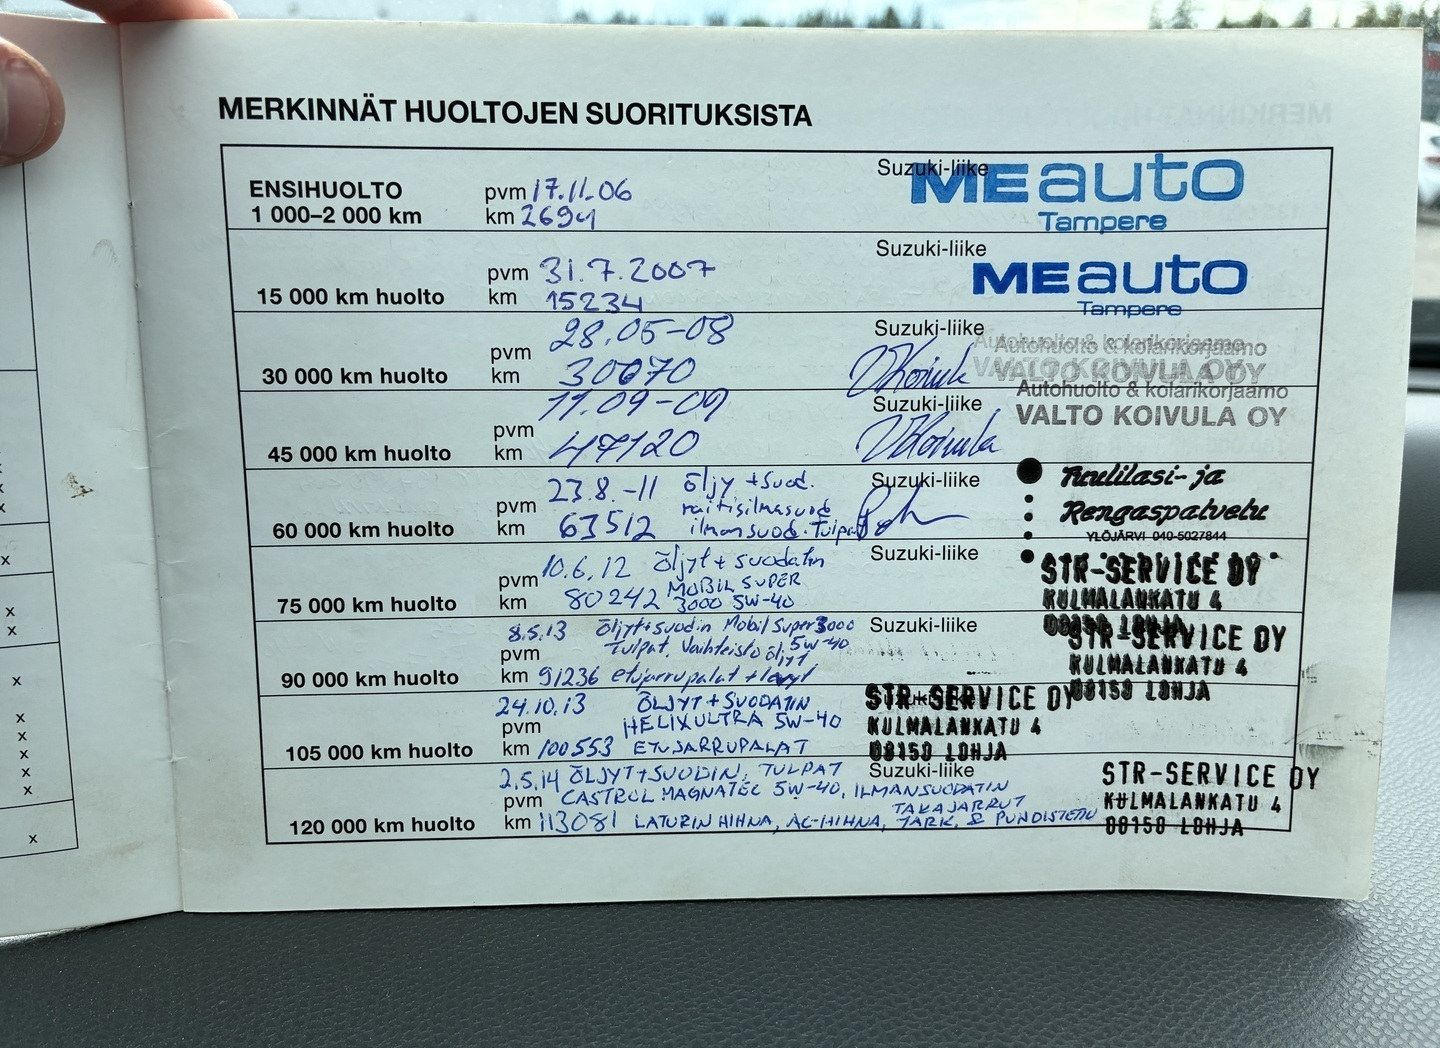 MERKINNÄT HUOLTOJEN SUORITUKSISTA
ENSIHUOLTO
1 000–2 000 km
pvm 17.11.06
km 2694
Suzuki-liike
MEauto
Tampere
15 000 km huolto
pvm 31.7.2007
km 15234
Suzuki-liike
MEauto
Tampere
30 000 km huolto
pvm 28.05-08
km 30070
Suzuki-liike
VKoivula
Autohuolto & kolarikorjaamo
VALTO KOIVULA OY
45 000 km huolto
pvm 11.09-09
km 47120
Suzuki-liike
VKoivula
Autohuolto & kolarikorjaamo
VALTO KOIVULA OY
60 000 km huolto
pvm 23.8.-11 öljy + suod.
raitisilmasuod
km 63512 ilmansuod. Tulpat
Suzuki-liike
Tuulilasi- ja
Rengaspalvelu
YLÖJÄRVI 040-5027844
75 000 km huolto
pvm 10.6.12 öljyt + suodatin
km 80242 MOBIL SUPER
3000 5W-40
Suzuki-liike
STR-SERVICE OY
KULMALANKATU 4
08150 LOHJA
90 000 km huolto
8.5.13 öljyt+suodin Mobil Super 3000
5W-40
pvm Tulpat, Vaihteisto öljyt
km 91236 etujarrupalat + levyt
Suzuki-liike
STR-SERVICE OY
KULMALANKATU 4
08150 LOHJA
105 000 km huolto
24.10.13 ÖLJYT + SUODATIN
pvm HELIX ULTRA 5W-40
km 100553 ETUJARRUPALAT
STR-SERVICE OY
KULMALANKATU 4
08150 LOHJA
120 000 km huolto
2.5.14 ÖLJYT+SUODIN, TULPAT
Suzuki-liike
pvm CASTROL MAGNATEC 5W-40, ILMANSUODATIN
TAKAJARRUT
km 113081 LATURIN HIHNA, AC-HIHNA, TARK. & PUHDISTETTU
STR-SERVICE OY
KULMALANKATU 4
08150 LOHJA